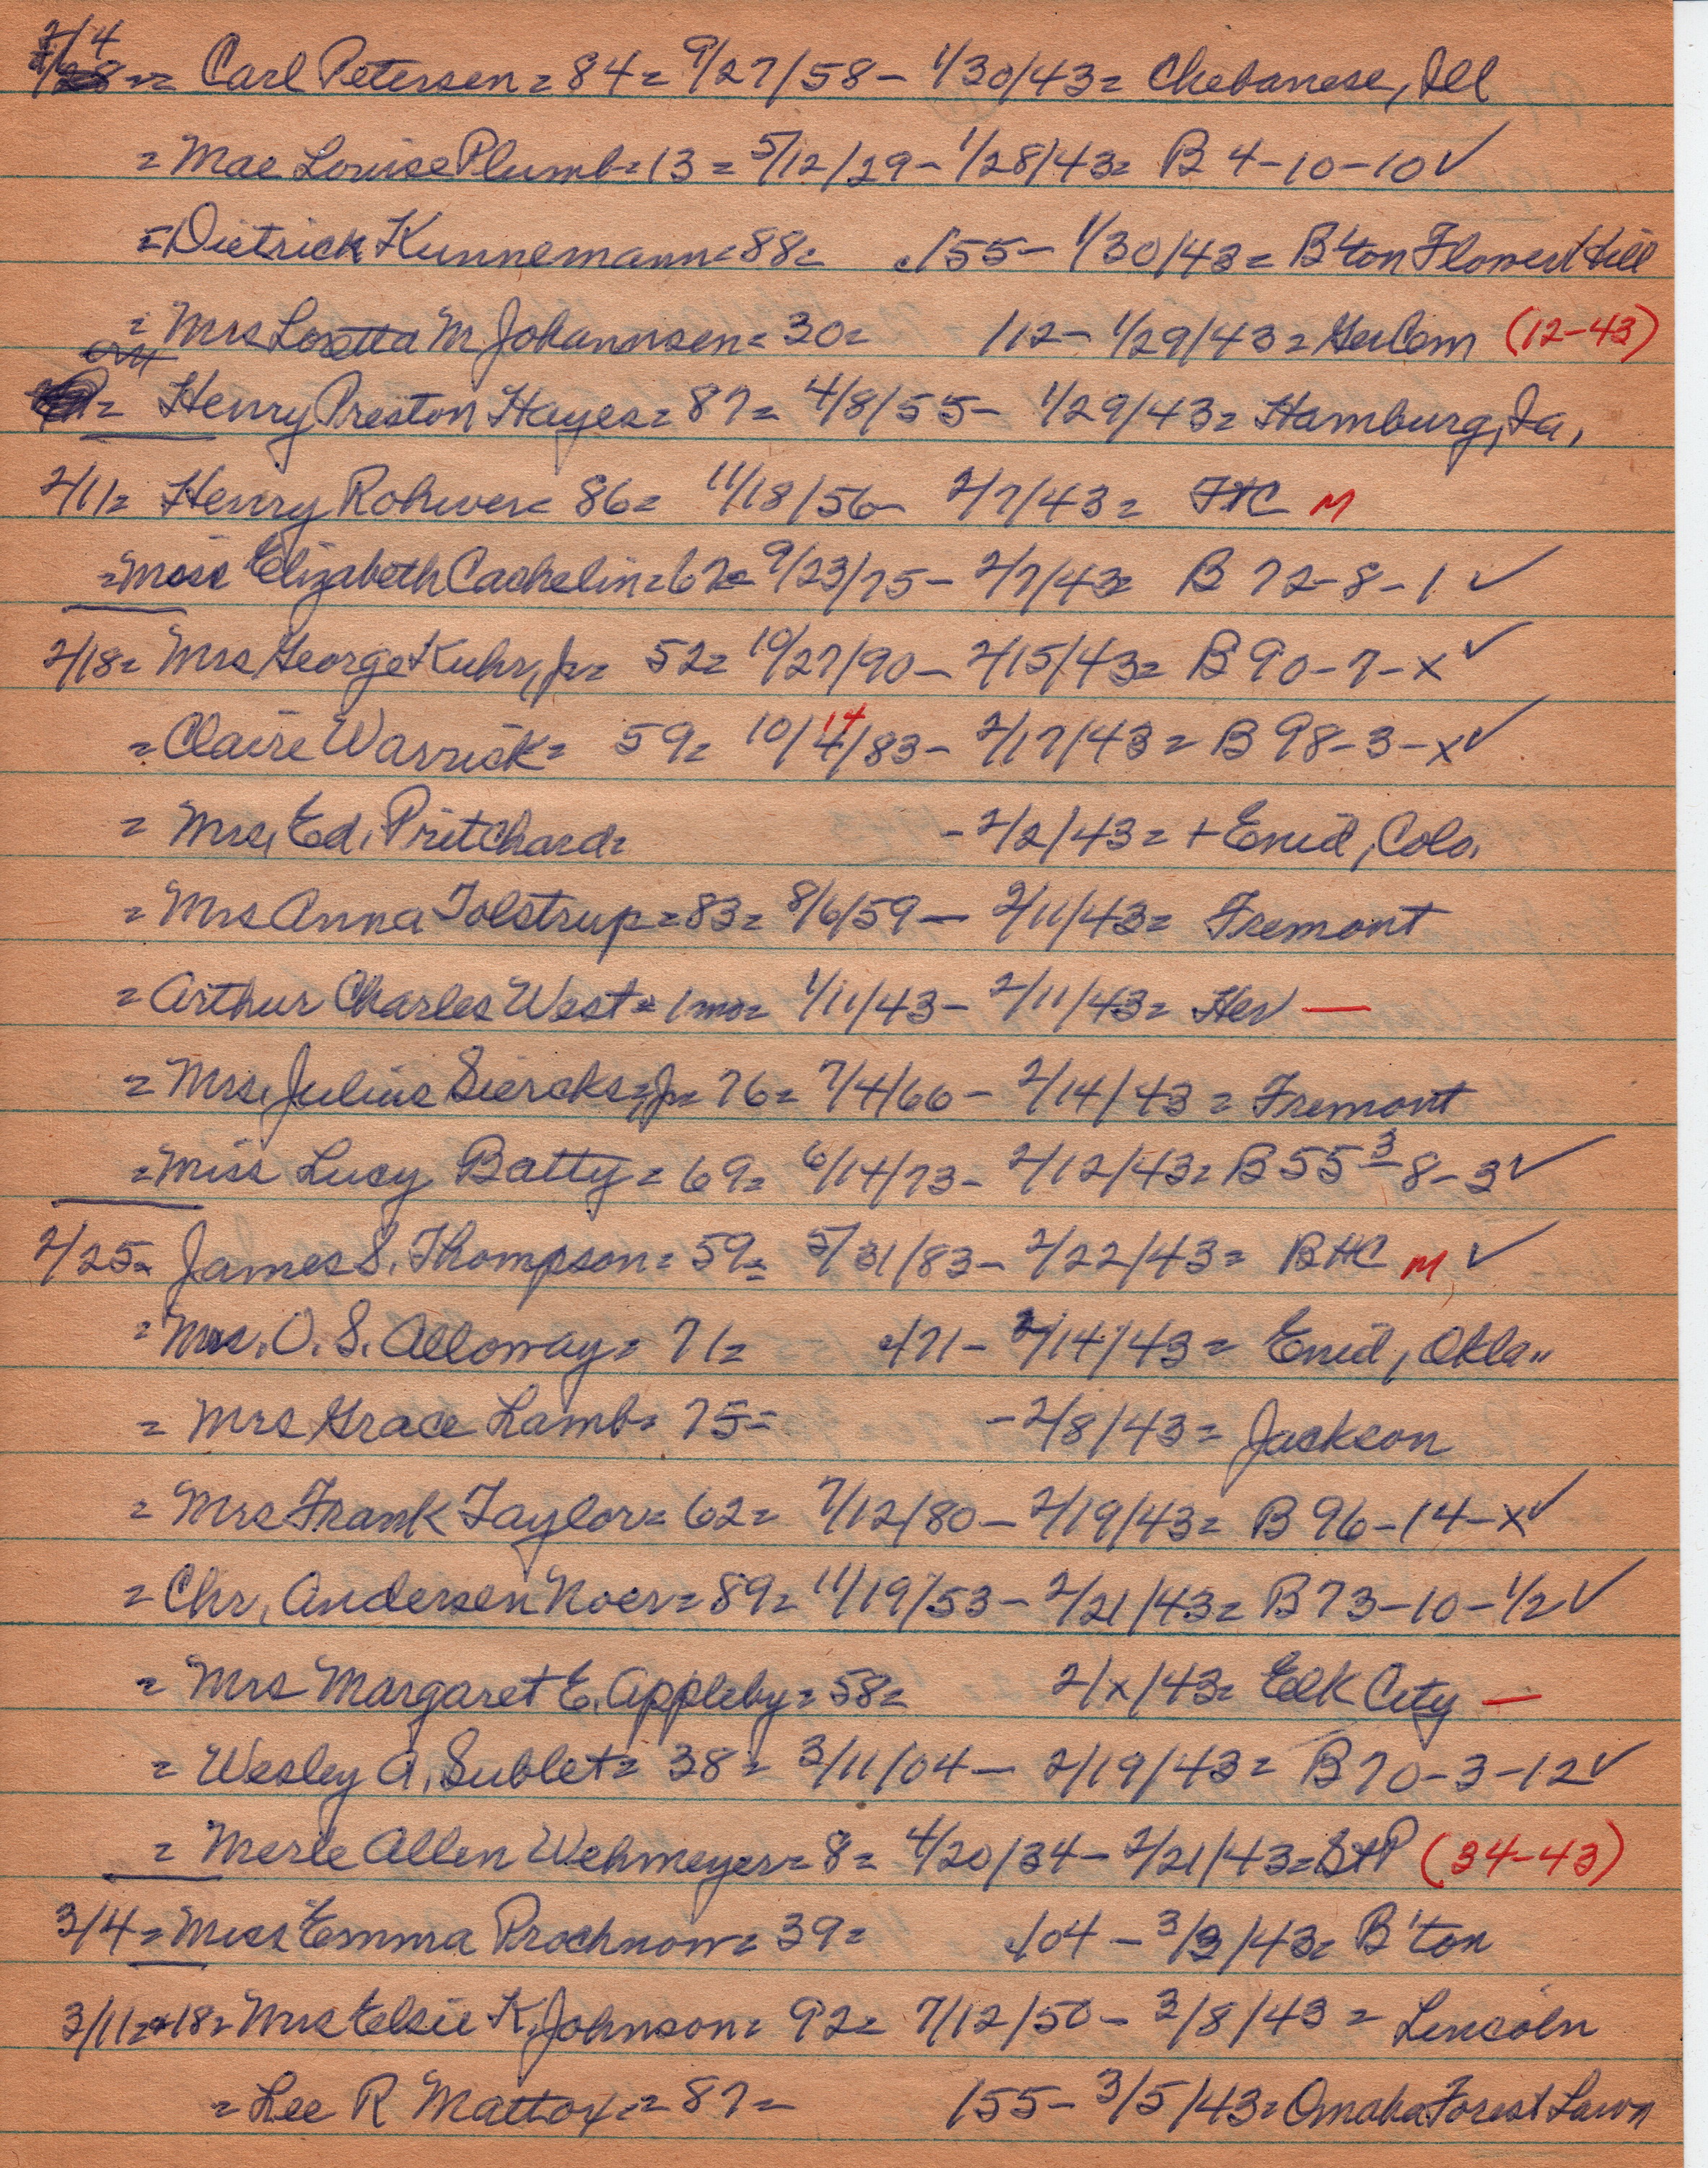 2/4 = Carl Petersen = 84 = 9/27/58 - 1/30/43 = Chebanese, Ill
= Mae Louise Plumb = 13 = 5/12/29 - 1/28/43 = B 4-10-10 ✓
= Dietrick Kunnemann = 88 = c/55 - 1/30/43 = B'ton Flower Hill
= Mrs Loretta M Johannsen = 30 = /12 - 1/29/43 = Ger Cem (12-43)
= Henry Preston Hayes = 87 = 4/8/55 - 1/29/43 = Hamburg, Ia.
2/11 = Henry Rohwer = 86 = 11/18/56 - 2/7/43 = FHC M
= Miss Elizabeth Cachelin = 67 = 9/23/75 - 2/7/43 = B 72-8-1 ✓
2/18 = Mrs George Kuhr, Jr = 52 = 10/27/90 - 2/15/43 = B 90-7-x ✓
= Claire Warrick = 59 = 10/14/83 - 2/17/43 = B 98-3-x ✓
= Mrs. Ed. Pritchard = - 2/2/43 = + Enid, Colo.
= Mrs Anna Tolstrup = 83 = 8/6/59 - 2/11/43 = Fremont
= Arthur Charles West = 1 mo = 1/11/43 - 2/11/43 = Her —
= Mrs. Julius Siercks, Jr = 76 = 7/4/66 - 2/14/43 = Fremont
= Miss Lucy Batty = 69 = 6/14/73 - 2/12/43 = B 55 3-8-3 ✓
2/25 = James S. Thompson = 59 = 5/31/83 - 2/22/43 = BHC M ✓
= Mrs. O. S. Alloway = 71 = c/71 - 2/14/43 = Enid, Okla..
= Mrs Grace Lamb = 75 = - 2/8/43 = Jackson
= Mrs Frank Taylor = 62 = 7/12/80 - 2/19/43 = B 96-14-x ✓
= Chr. Andersen Noer = 89 = 11/19/53 - 2/21/43 = B 73-10-1/2 ✓
= Mrs Margaret E. Appleby = 58 = 2/x/43 = Elk City —
= Wesley A. Sublet = 38 = 3/11/04 - 2/19/43 = B 70-3-12 ✓
= Merle Allen Wehmeyer = 8 = 4/20/34 - 2/21/43 = StP (34-43)
3/4 = Miss Emma Prochnow = 39 = c/04 - 3/3/43 = B'ton
3/11 = + 18 = Mrs Elsie K. Johnson = 92 = 7/12/50 - 3/8/43 = Lincoln
= Lee R Mattox = 87 = /55 - 3/5/43 = Omaha Forest Lawn